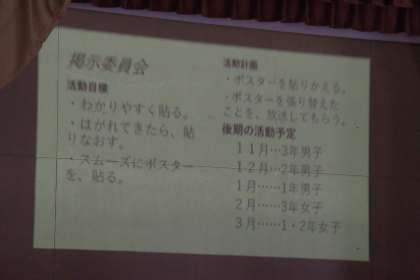 掲示委員会
活動目標
・わかりやすく貼る。
・はがれてきたら、貼
りなおす。
・スムーズにポスター
を、貼る。
活動計画
・ポスターを貼りかえる。
・ポスターを張り替えた
ことを、放送してもらう。
後期の活動予定
１１月…3年男子
１２月…2年男子
１月……1年男子
２月……3年女子
３月……1・2年女子